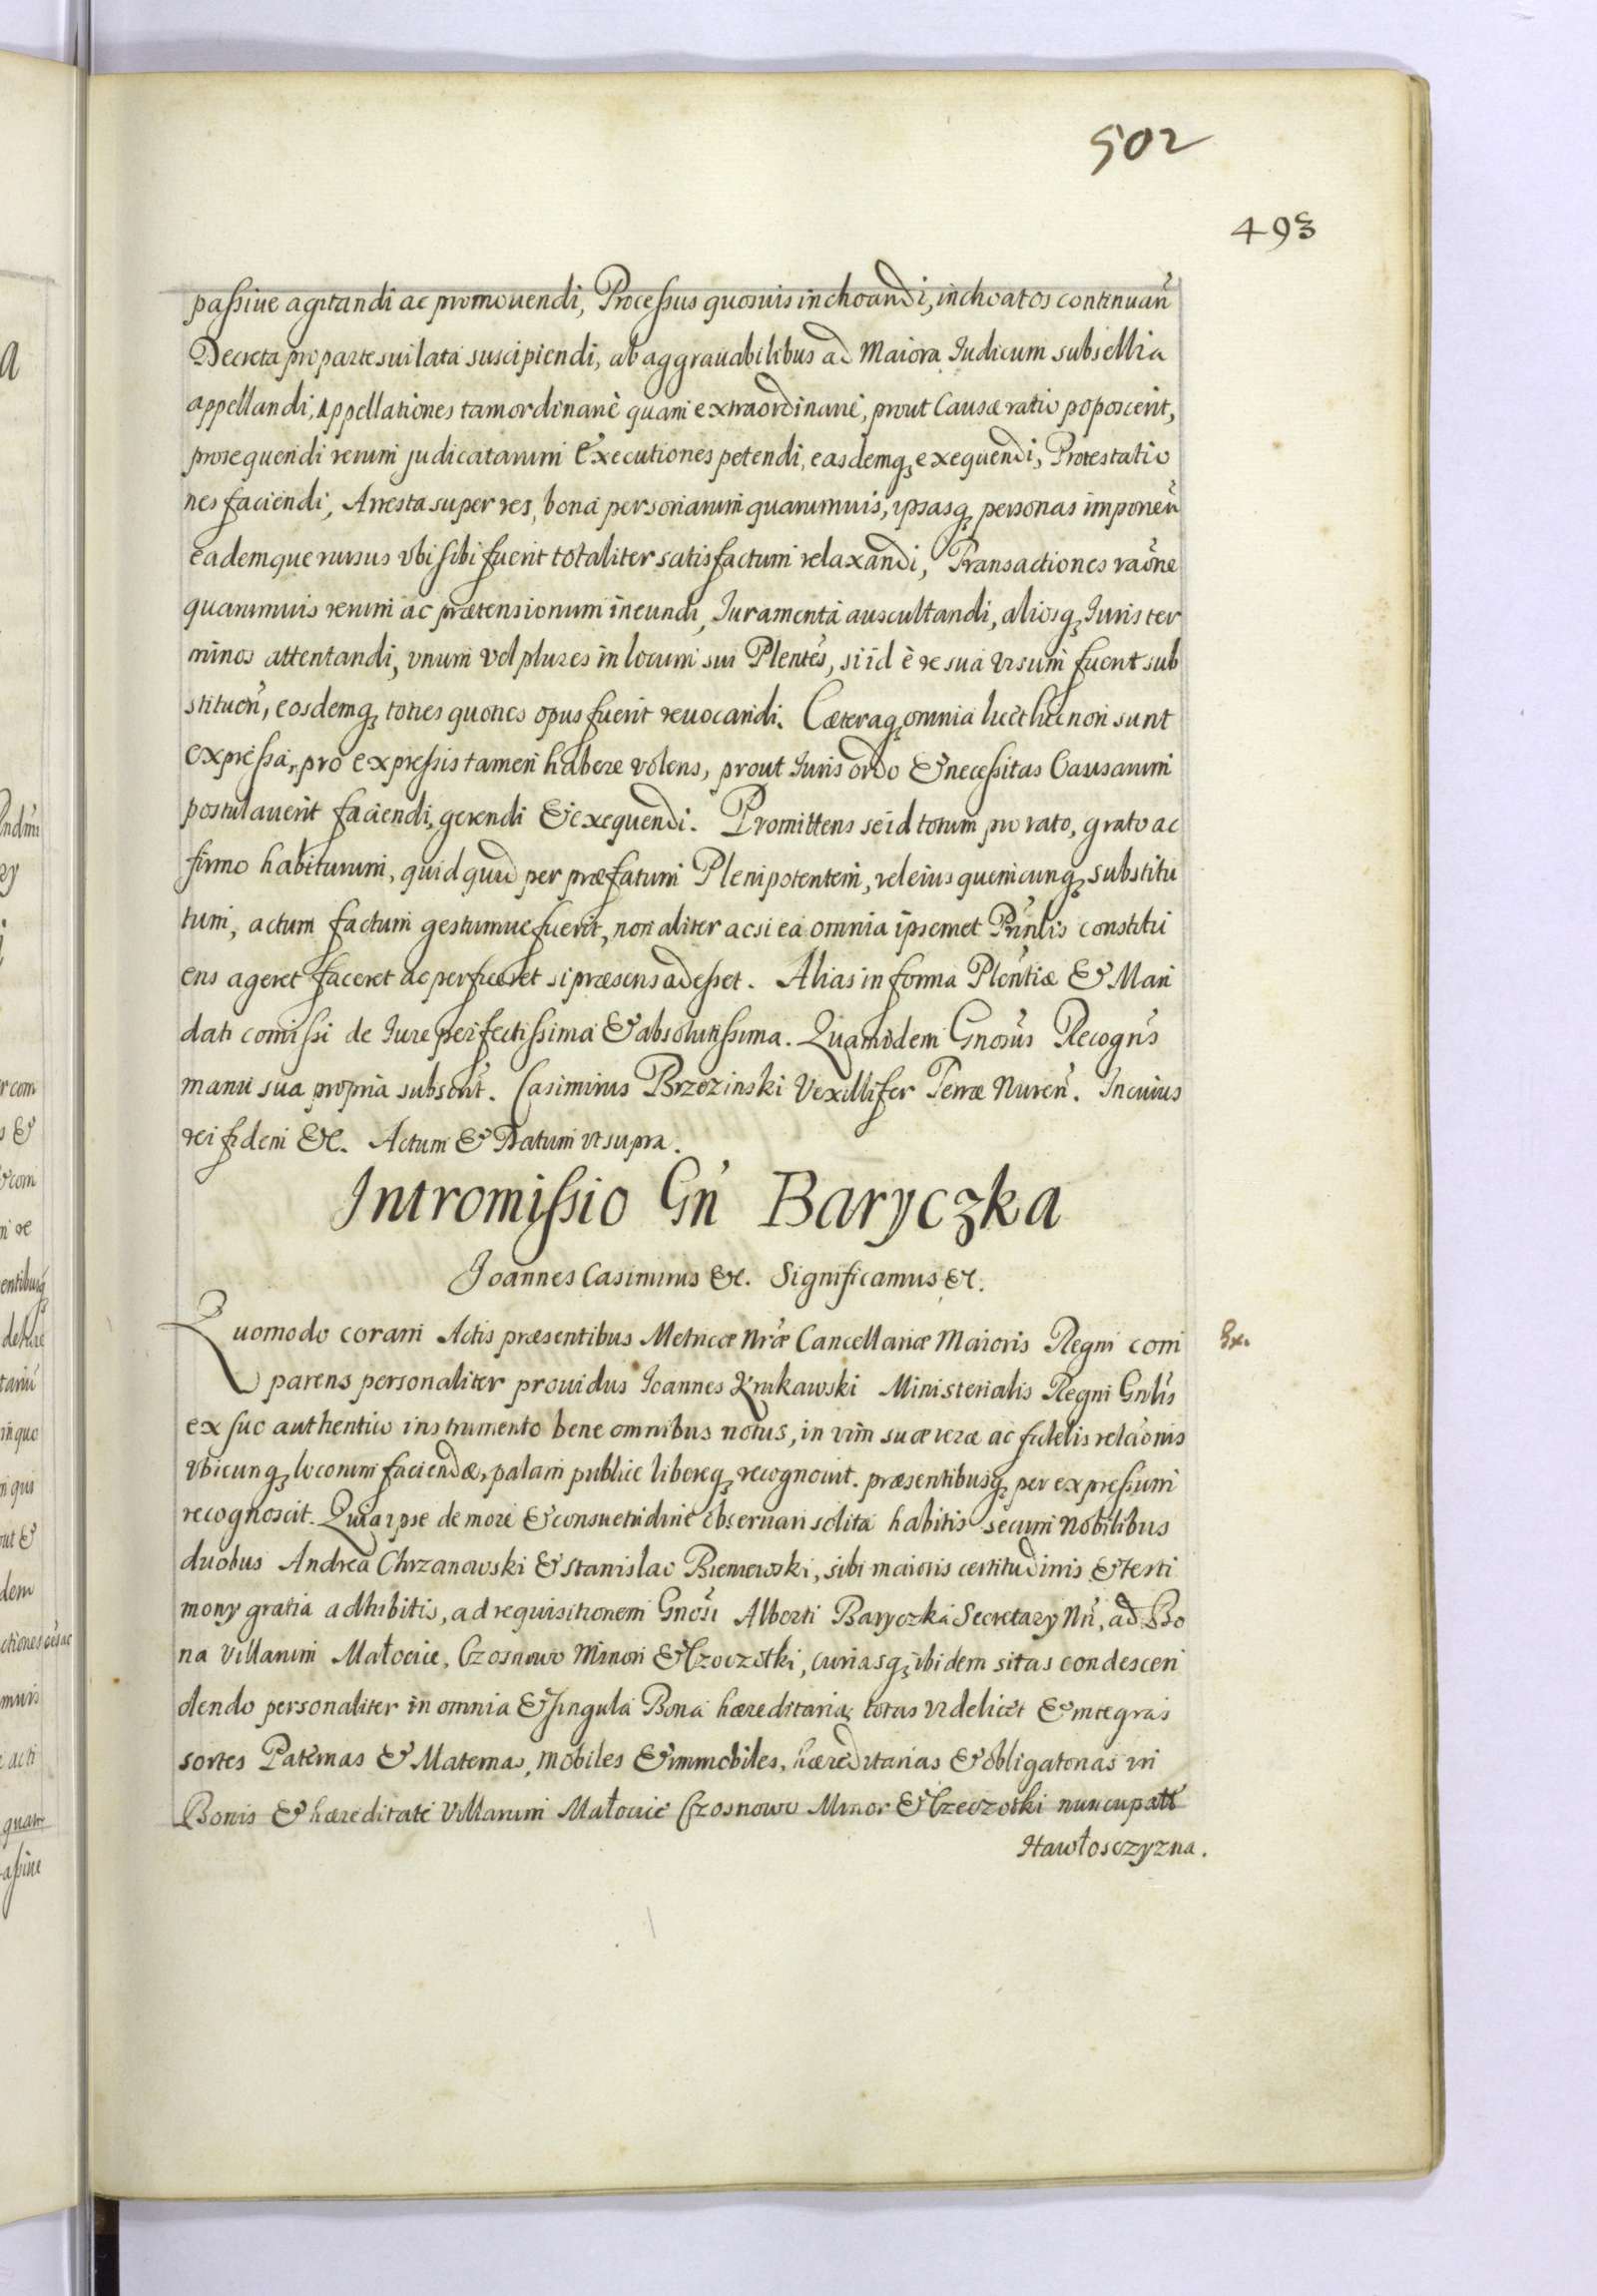 502
493
passiue agitandi ac promouendi, Processus quosuis inchoandi, inchoatos continuan̄
Decreta pro parte sui lata suscipiendi, ab aggrauabilibus ad Maiora Judicum subsellia
appellandi, Appellationes tam ordinariè quam extraordinariè, prout Causæ ratio poposcerit,
prosequendi rerum judicatarum Executiones petendi, easdemq; exequendi, Protestatio
nes faciendi, Arresta super res, bona personarum quarumuis, ipsasq; personas imponen̄
eademque rursus vbi sibi fuerit totaliter satisfactum relaxandi, Transactiones raōne
quarumuis rerum ac prætensionum ineundi, Juramenta auscultandi, aliosq; Juris ter
minos attentandi, vnum vel plures in locum sui Plentes, si id è re sua visum fuerit sub
stituen̄, eosdemq; toties quoties opus fuerit reuocandi. Cæteraq; omnia licèt hic non sunt
expressa, pro expressis tamen habere volens, prout Juris ordo & necessitas Causarum
postulauerit faciendi, gerendi & exequendi. Promittens se id totum pro rato, grato ac
firmo habiturum, quidquid per præfatum Plenipotentem, vel eius quemcunq; substitu
tum, actum factum gestumue fuerit, non aliter ac si ea omnia ipsemet Prin̄lis constitu
ens ageret faceret ac perficeret si præsens adesset. Alias in forma Plen̄tiæ & Man
dati comissi de Jure perfectissima & absolutissima. Quam idem Gnosus Recogn̄s
manu sua propria subscrit. Casimirus Brzozinski Vexillifer Terræ Nuren̄. In cuius
rei fidem &c. Actum & Datum vt supra.
Intromissio Gn̄ Baryczka
Joannes Casimirus &c. Significamus &c.
Quomodo coram Actis præsentibus Metricæ Nrǣ Cancellariæ Maioris Regni com
Ex.
parens personaliter prouidus Joannes Krukawski Ministerialis Regni Gnl̄is
ex suo authentico instrumento bene omnibus notus, in vim suæ veræ ac fidelis relāonis
vbicunq; locorum faciendæ, palam publice libereq; recognouit. præsentibusq; per expressum
recognoscit. Quia ipse de more & consuetudine obseruari solita habitis secum Nobilibus
duobus Andrea Chrzanowski & Stanislao Bieniewski, sibi maioris certitudinis & testi
mony gratia adhibitis, ad requisitionem Gnosi Alberti Baryczka Secretary Nri, ad Bo
na Villarum Małocice, Czosnowo Minori & Czeczotki, curiasq; ibidem sitas condescen
dendo personaliter in omnia & singula Bona hæreditaria, totas videlicèt & integras
sortes Paternas & Maternas, mobiles & immobiles, hæreditarias & obligatorias in
Bonis & hæreditate Villarum Małocice Czosnowo Minor & Czeczotki nuncupatt
Hawłosczyzna.